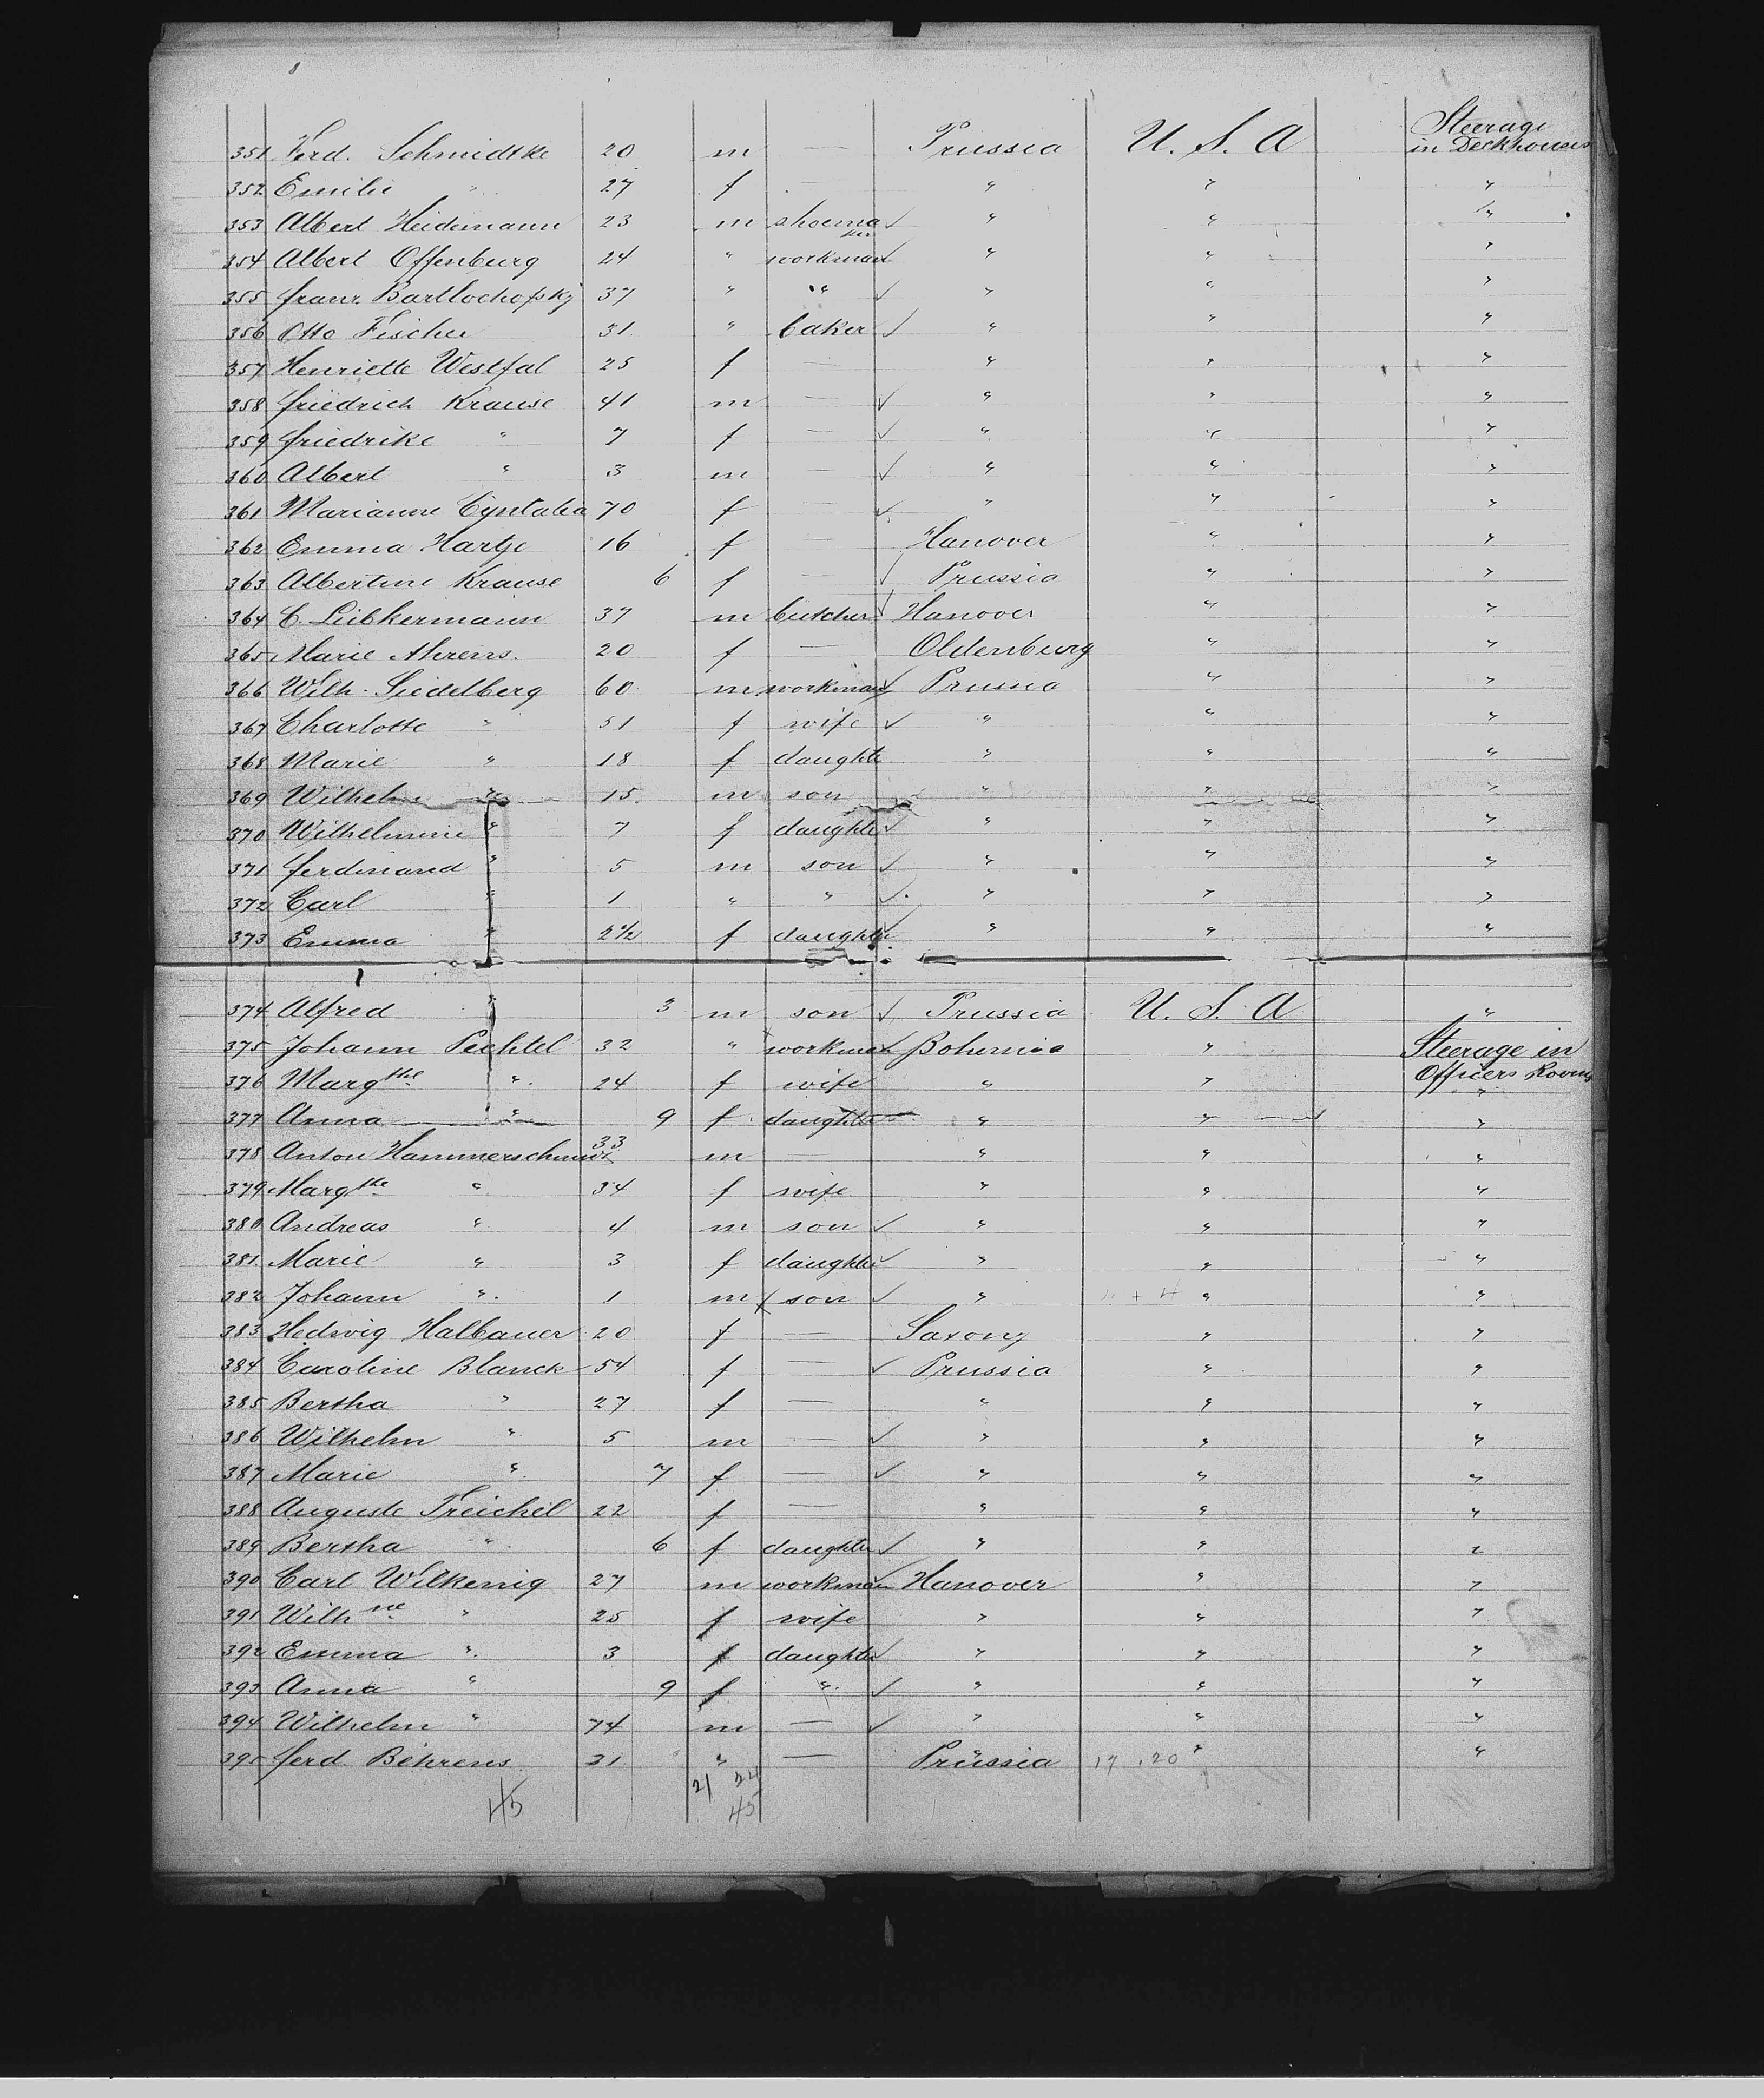 351 Ferd. Schmidtke 20 m — Prussia U. S. A Steerage in Deckhouses
352 Emilie " 27 f — " " "
353 Albert Heidemann 23 m shoemaker ✓ " " "
354 Albert Offenburg 24 " workman " " "
355 Franz 37 " " ✓ " " "
356 Otto Fischer 31 " baker ✓ " " "
357 Henriette Westfal 25 f — " " "
358 Friedrich Krause 41 m — ✓ " " "
359 Friedrike " 7 f — ✓ " " "
360 Albert " 3 m — ✓ " " "
361 Marianne 70 f — ✓ " " "
362 Emma Hartje 16 f — Hanover " "
363 Albertine Krause 6 f — ✓ Prussia " "
364 C. Lübkermann 37 m butcher ✓ Hanover " "
365 Marie Ahrens. 20 f — Oldenburg " "
366 Wilh. Siedelberg 60 m workman ✓ Prussia " "
367 Charlotte " 51 f wife ✓ " " "
368 Marie " 18 f daughte " " "
369 Wilhelm " 15. m son " " "
370 Wilhelmine " 7 f daughte ✓ " " "
371 Ferdinand " 5 m son ✓ " " "
372 Carl " 1 " " ✓ " " "
373 Emma " 2½ f daughte ✓ " " "
374 Alfred " 3 m son ✓ Prussia U. S. A "
375 Johann Pechtel 32 " workman Bohemia " Steerage in Officers Rooms
376 Margthe " 24 f wife " " "
377 Anna " 9 f daughter " " "
378 Anton Hammerschmidt 33 m — " " "
379 Margthe " 34 f wife " " "
380 Andreas " 4 m son ✓ " " "
381 Marie " 3 f daughter ✓ " " "
382 Johann " 1 m son ✓ " " "
383 Hedwig Halbauer 20 f — Saxony " "
384 Caroline Blanck 54 f — ✓ Prussia " "
385 Bertha " 27 f — " " "
386 Wilhelm " 5 m — ✓ " " "
387 Marie " 7 f — ✓ " " "
388 Auguste Treichel 22 f — " " "
389 Bertha " 6 f daughter ✓ " " "
390 Carl Wilkenig 27 m workman Hanover " "
391 Wilhne " 25 f wife " " "
392 Emma " 3 f daughter ✓ " " "
393 Anna " 9 f " ✓ " " "
394 Wilhelm " 74 m — ✓ " " "
395 Ferd. Behrens 31 " — Prussia 17 . 20 " "
21 24
45 45